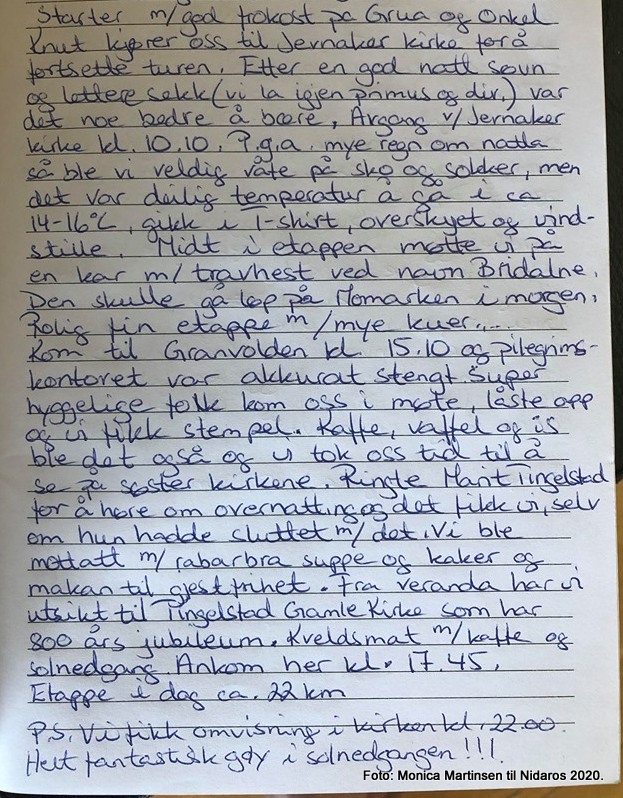 Starter m/god frokost på Grua og Onkel
Knut kjører oss til Jevnaker kirke for å
fortsette turen. Etter en god natt søvn
og lettere sekk (vi la igjen primus og div.) var
det noe bedre å bære. Avgang v/Jevnaker
kirke kl. 10.10. P.g.a. mye regn om natta
så ble vi veldig våte på sko og sokker, men
det var deilig temperatur å gå i ca
14-16°C, gikk i T-shirt, overskyet og vind-
stille. Midt i etappen møtte vi på
en kar m/travhest ved navn Bridalne.
Den skulle gå løp på Momarken i morgen.
Rolig fin etappe m/mye kuer.....
Kom til Granvolden kl 15.10 og pilegrims-
kontoret var akkurat stengt. Super
hyggelige folk kom oss i møte, låste opp
og vi fikk stempel. Kaffe, vaffel og is
ble det også og vi tok oss tid til å
se på søster kirkene. Ringte Marit Tingelstad
for å høre om overnatting og det fikk vi, selv
om hun hadde sluttet m/det. Vi ble
mottatt m/rabarbra suppe og kaker og
makan til gjestfrihet. Fra veranda har vi
utsikt til Tingelstad Gamle Kirke som har
800 års jubileum. Kveldsmat m/kaffe og
solnedgang. Ankom her kl. 17.45.
Etappe i dag ca. 22 km
P.S. Vi fikk omvisning i kirken kl. 22.00.
Helt fantastisk i solnedgangen!!!.
Foto: Monica Martinsen til Nidaros 2020.